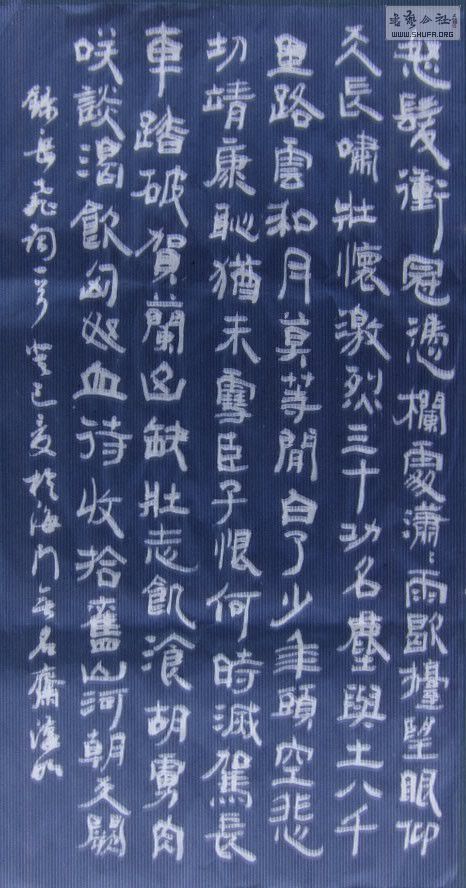 怒髮衝冠憑欄處瀟〻雨歇擡望眼仰
天長嘯壯懷激烈三十功名塵與土八千
里路雲和月莫等閒白了少年頭空悲
切靖康恥猶未雪臣子恨何時滅駕長
車踏破賀蘭山缺壯志飢飡胡虜肉
咲談渴飲匈奴血待收拾舊山河朝天闕
錄岳飛詞一首癸巳夏於海門無名齋
書藝公社
WWW.SHUFA.ORG